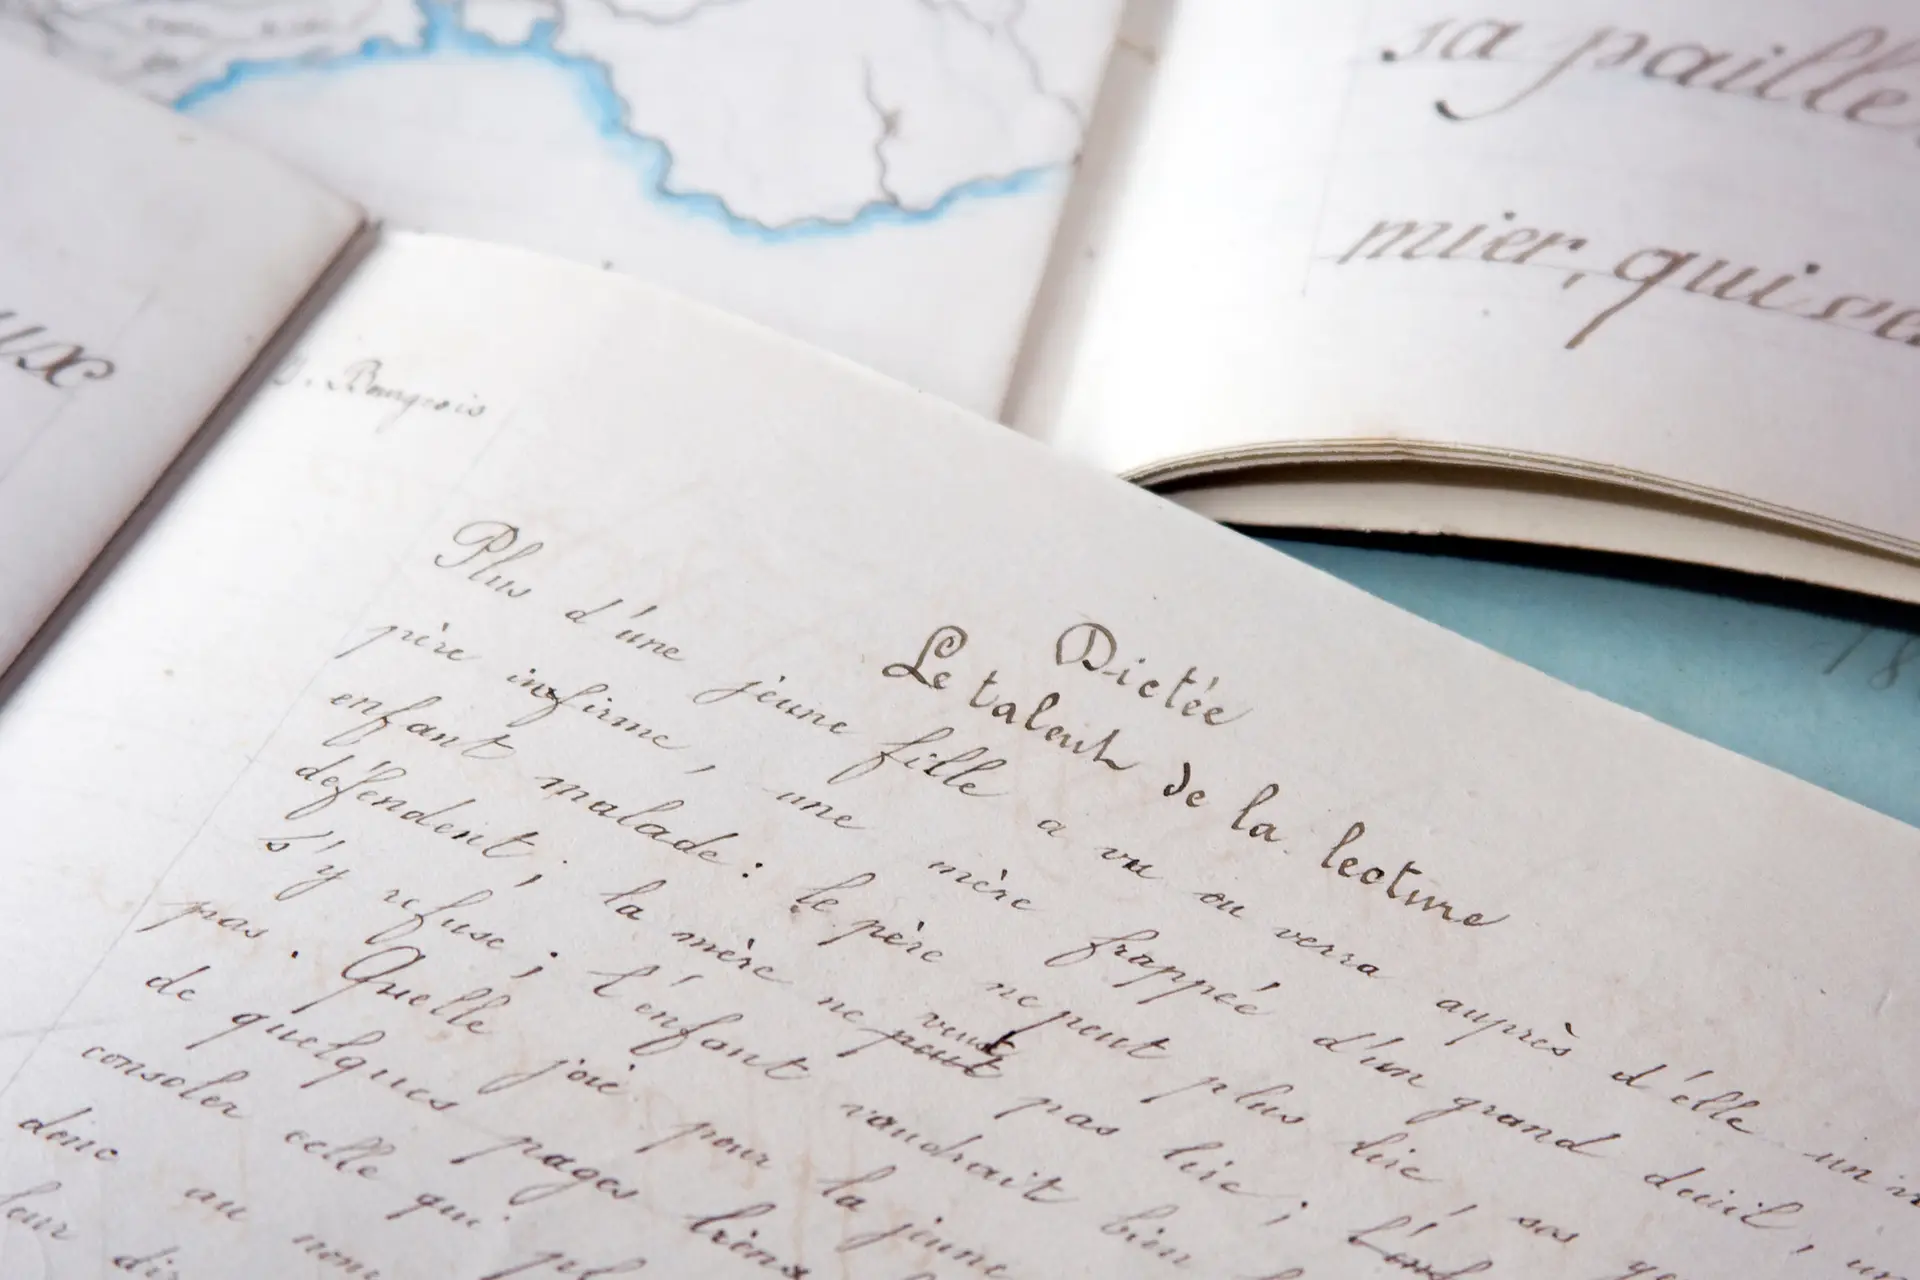 sa paille
mier, qui se
ux
Bourgeois
18
Dictée
Le talent de la lecture
Plus d'une jeune fille a vu ou verra auprès d'elle un
père infirme, une mère frappée d'un grand deuil, un
enfant malade: le père ne peut plus lire, ses
défendent; la mère ne peut veut pas lire;
s'y refuse; l'enfant voudrait bien
pas. Quelle joie pour la jeune
de quelques pages
consoler celle qui
donc au nom
leur